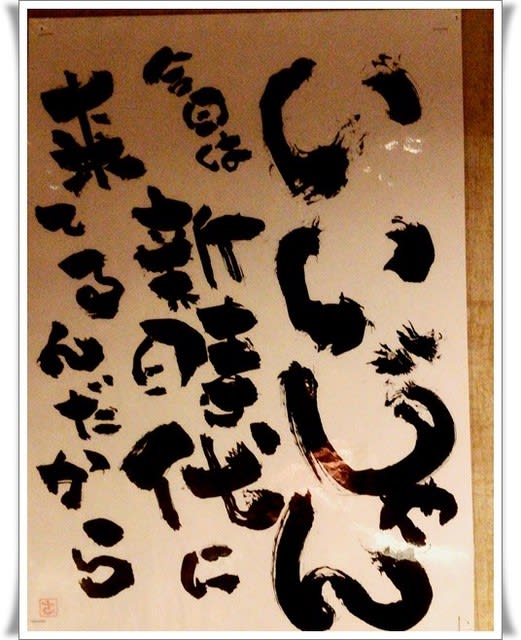 いいじゃん
今日は
新時代に
来てるんだから